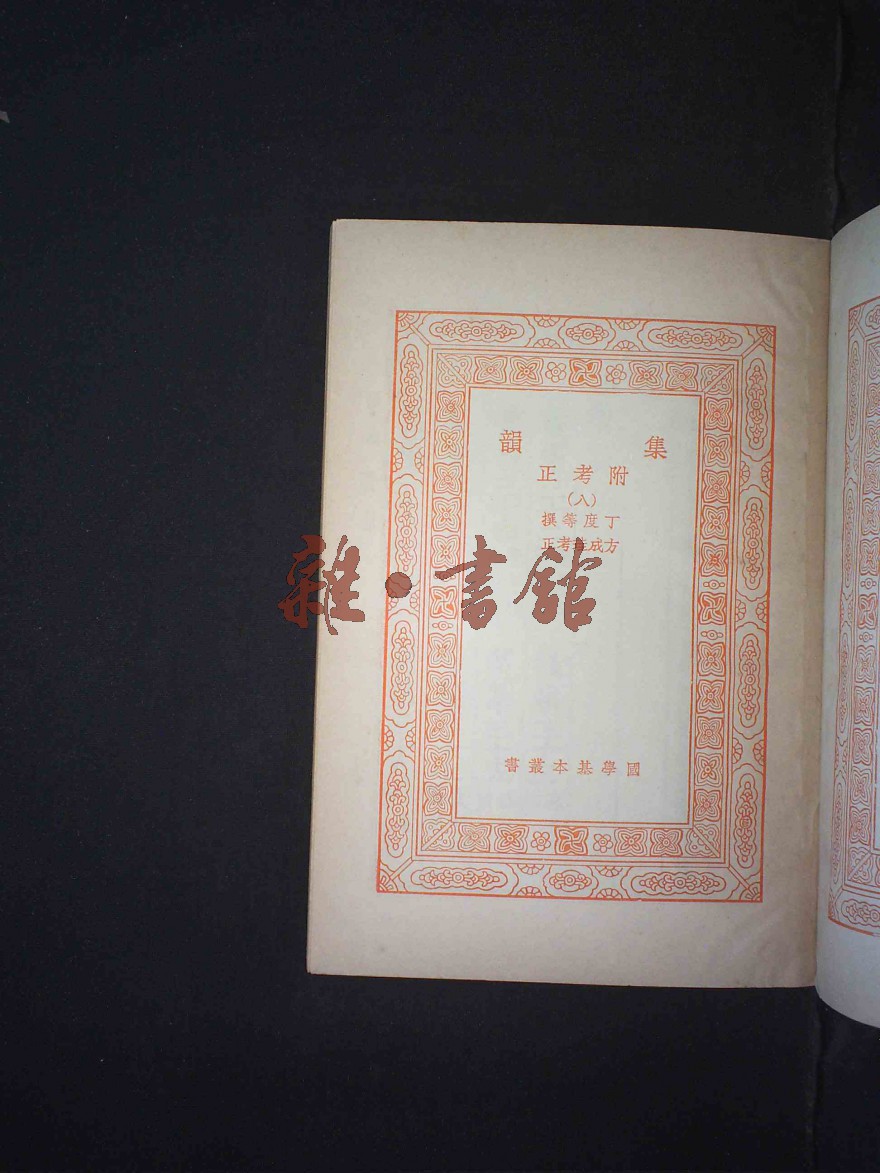 集韻
附考正
(八)
丁度等撰
方成珪考正
雜·書館
國學基本叢書